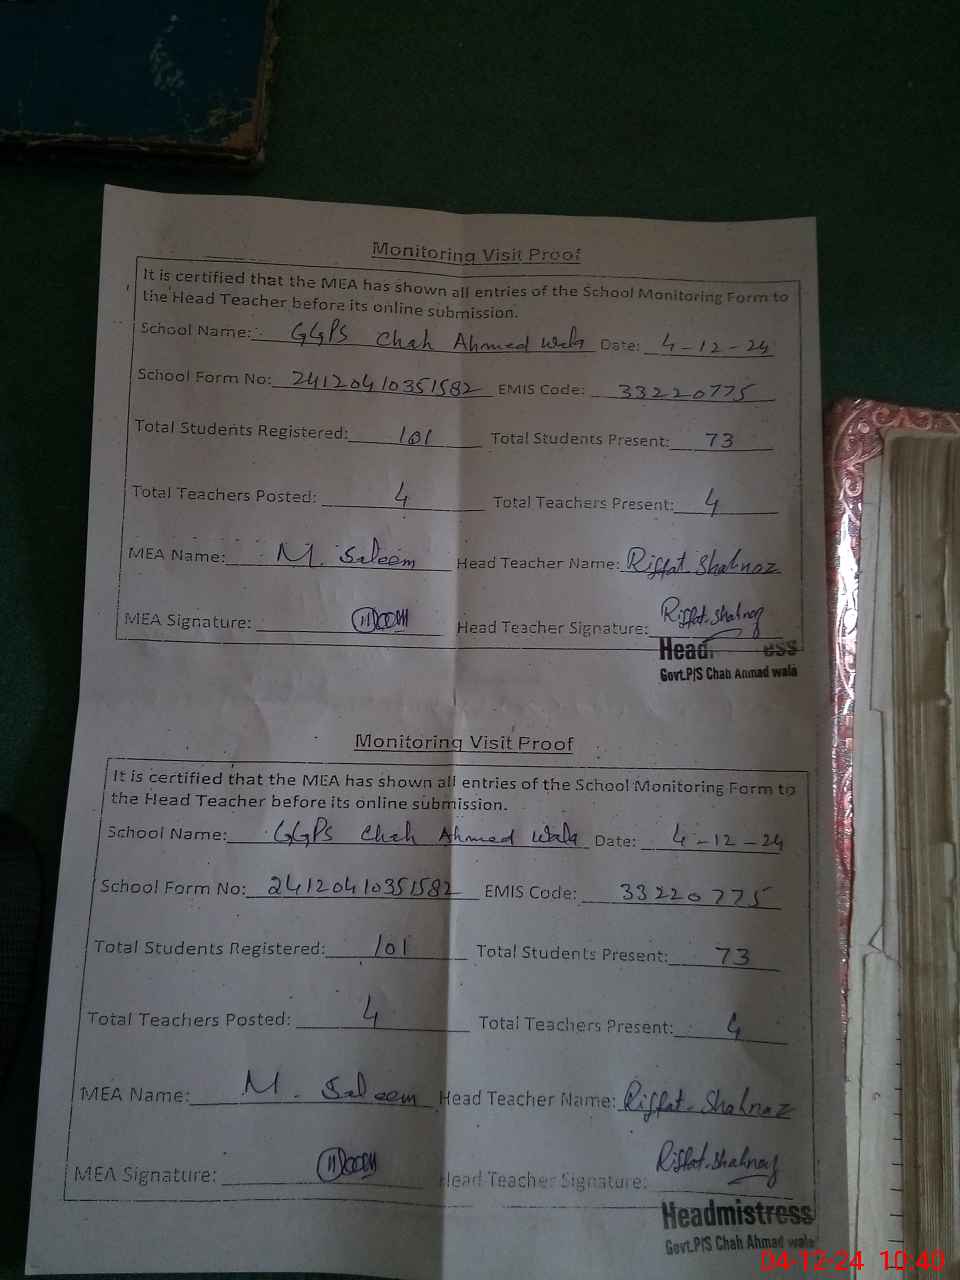 Monitoring Visit Proof
It is certified that the MEA has shown all entries of the School Monitoring Form to
the Head Teacher before its online submission.
School Name: GGPS Chah Ahmed Wala Date: 4-12-24
School Form No: 24120410351582 EMIS Code: 33220775
Total Students Registered: 101 Total Students Present: 73
Total Teachers Posted: 4 Total Teachers Present: 4
MEA Name: M. Saleem Head Teacher Name: Riffat Shahnaz
MEA Signature: Head Teacher Signature: Riffat Shahnaz
Govt.P/S Chah Ahmad wala
Monitoring Visit Proof
It is certified that the MEA has shown all entries of the School Monitoring Form to
the Head Teacher before its online submission.
School Name: GGPS Chah Ahmed Wala Date: 4-12-24
School Form No: 24120410351582 EMIS Code: 33220775
Total Students Registered: 101 Total Students Present: 73
Total Teachers Posted: 4 Total Teachers Present: 4
MEA Name: M. Saleem Head Teacher Name: Riffat Shahnaz
MEA Signature: Head Teacher Signature: Riffat Shahnaz
Headmistress
Govt.P/S Chah Ahmad wala
04-12-24 10:40